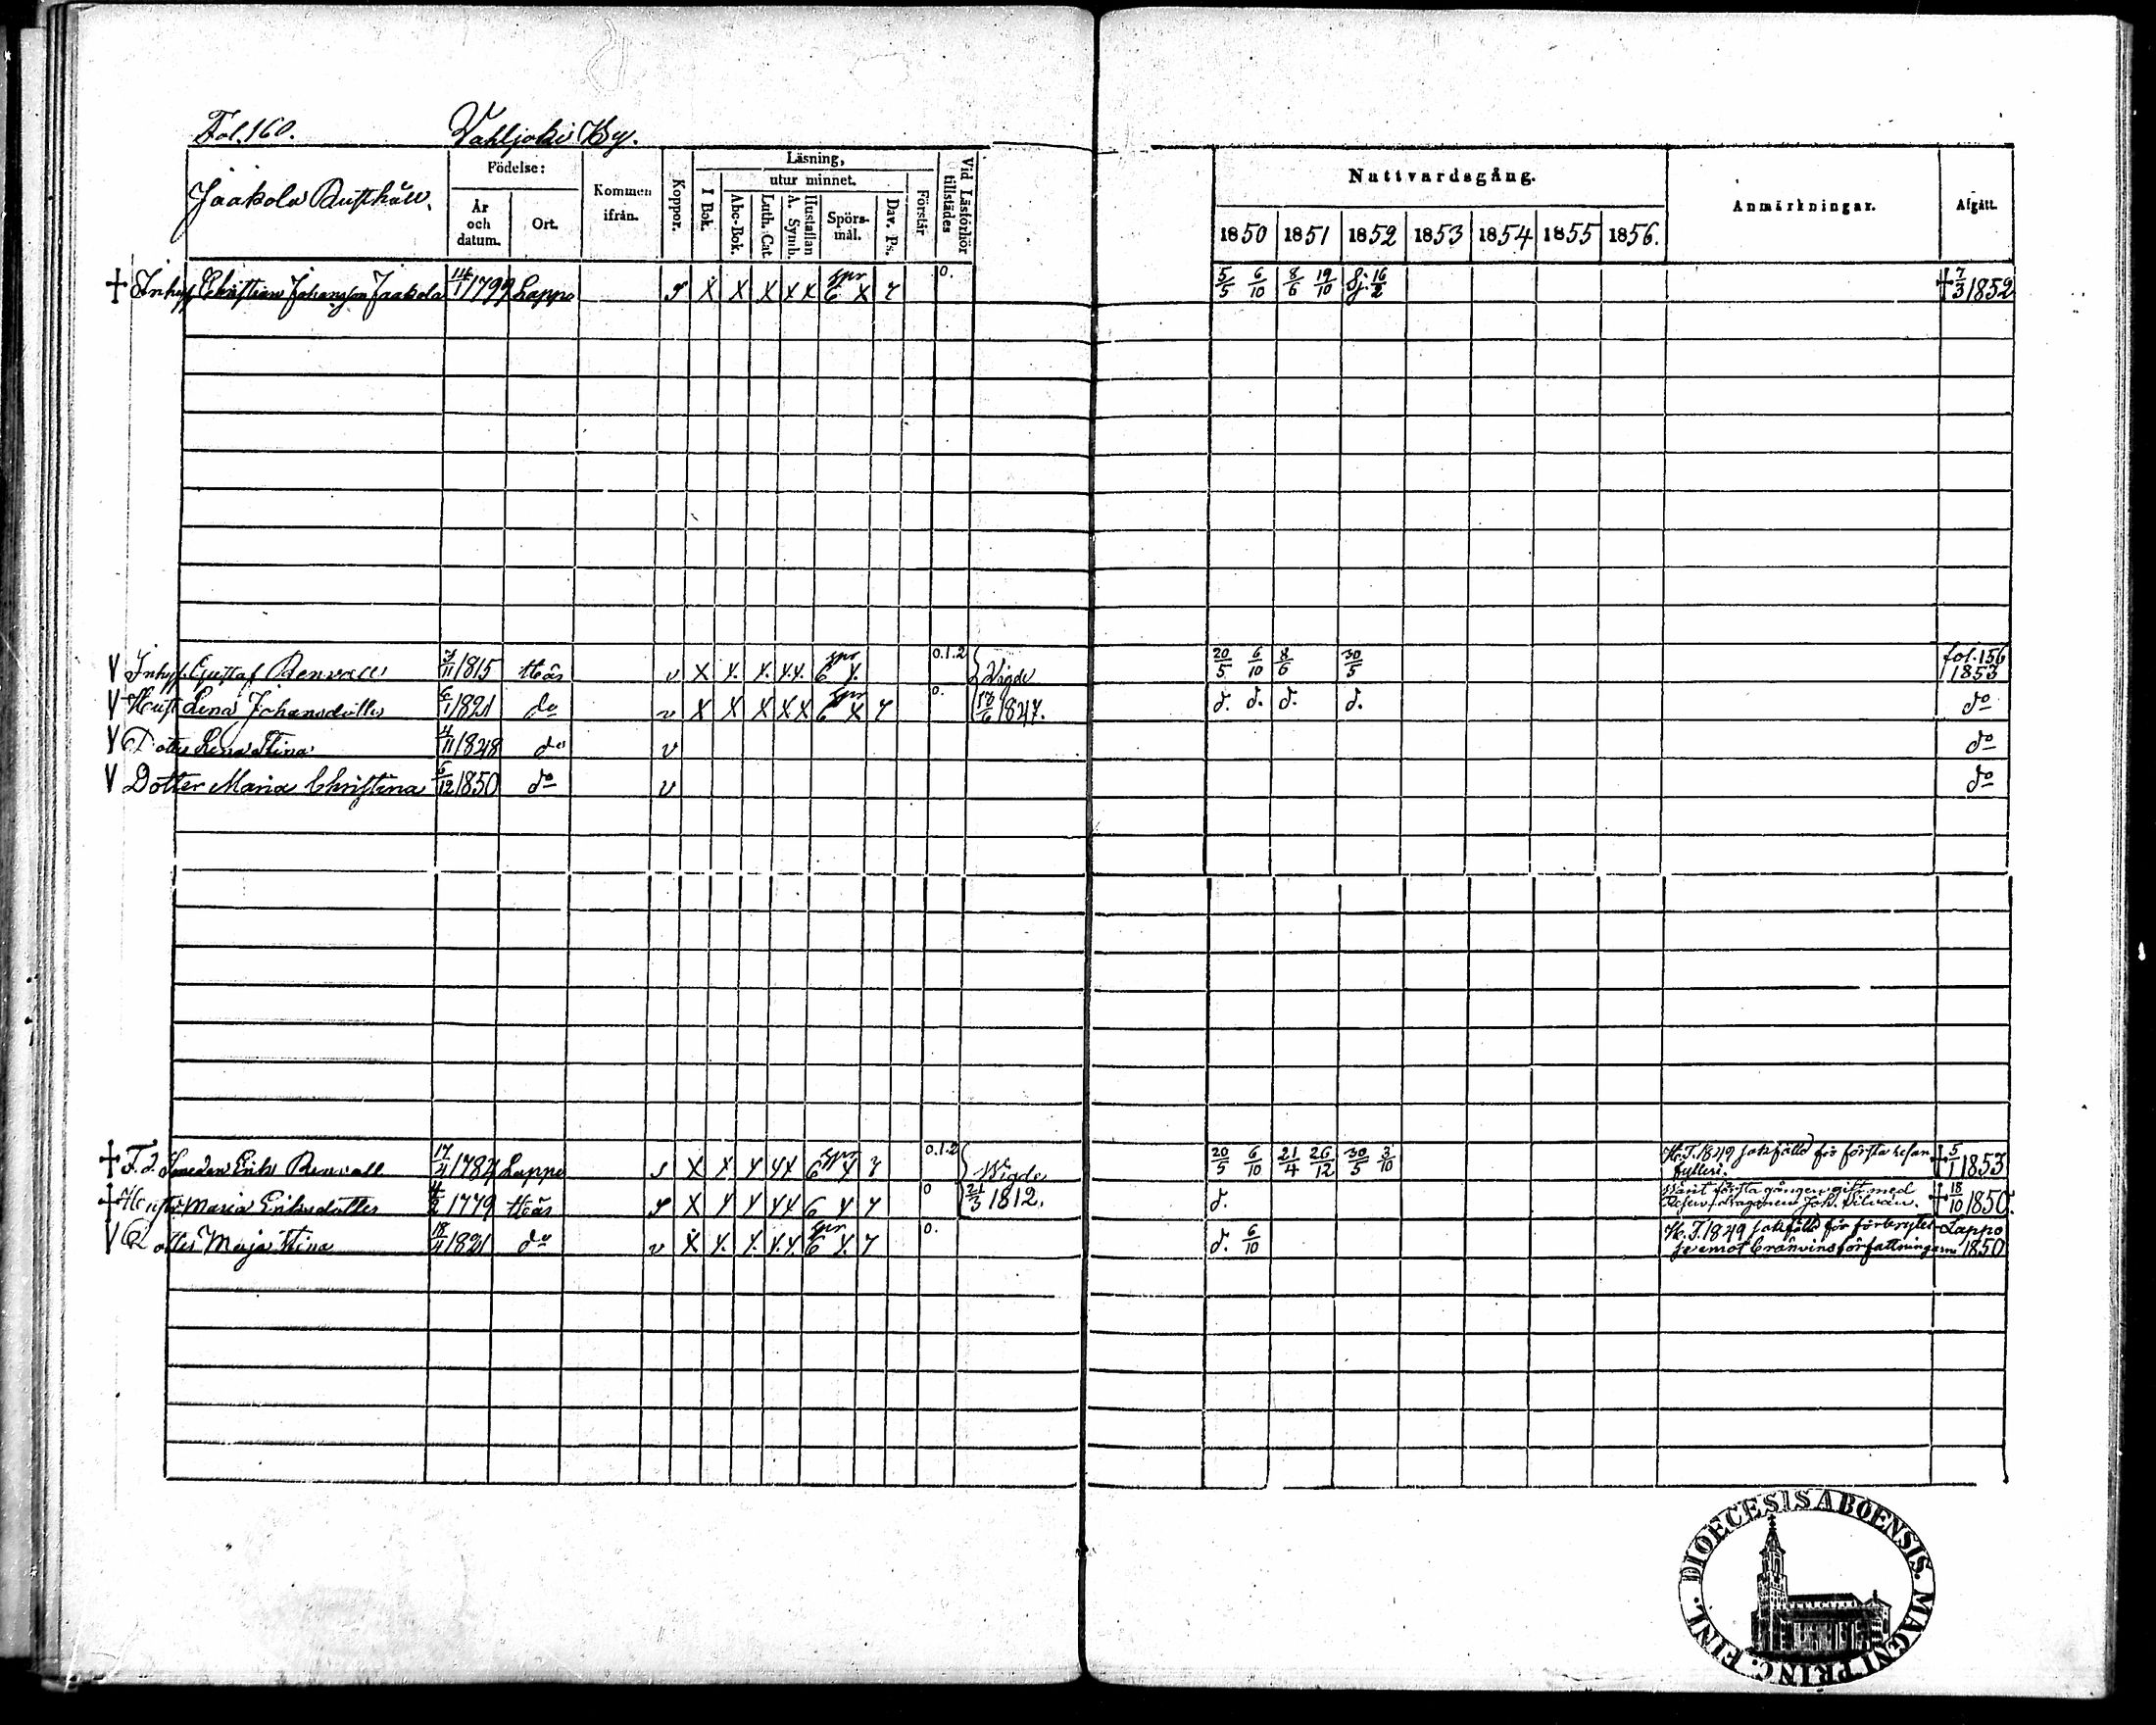 Fol. 160. Vahljoki By.
Jaakola Rusthåll.
Födelse:
År och datum.
Ort.
Kommen ifrån.
Koppor.
Läsning,
I Bok.
utur minnet.
Abc-Bok.
Luth. Cat.
A. Symb.
Hustaflan
Spörs-mål.
Dav. Ps.
Förstår
Vid Läsförhör tillstädes
Nattvardsgång.
1850 1851 1852 1853 1854 1855 1856.
Anmärkningar.
Afgått.
† Inhys. Christian Johansson Jaakola 14/1 1799 Lappo S X X X X X spr 6 X 7 0. 5/5 6/10 8/6 19/10 Sj. 16/2 † 7/3 1852
V Inhys. Gustaf Renvall 3/11 1815 Här v X X. X. X.X. spr 6 X. 0.1.2 } Vigde 20/5 6/10 8/6 30/5 fol. 156 1853
V Hust. Lena Johansdotter 6/1 1821 do v X X X X X spr 6 X 7 0. 18/6 1847. d. d. d. d. do
V Dotter Lena Stina 4/11 1848 do v do
V Dotter Maria Christina 6/12 1850 do v do
† F.d. Smeden Erik Renvall 17/4 1784 Lappo S X X. X X X spr 6 X 7 0.1.2 } Wigde 20/5 6/10 21/4 26/12 30/5 3/10 H.T. 1849 sakfälld för första resan fylleri. † 5/1 1853
† Hustr. Maria Eriksdotter 4/2 1779 Här S X X X X X 6 X 7 0 21/3 1812. d. Varit första gången gift med Reserv. Dragonen Joh. Silvan. † 18/10 1850.
V Dotter Maja Stina 18/4 1821 do v X X. X. X.X. spr 6 X. 7 0. d. 6/10 H.T. 1849 sakfälld för förbrytelse emot bränvinsförfattningarne Lappo 1850
DIOECESIS ABOENSIS. MAGNI PRINC. FINL.